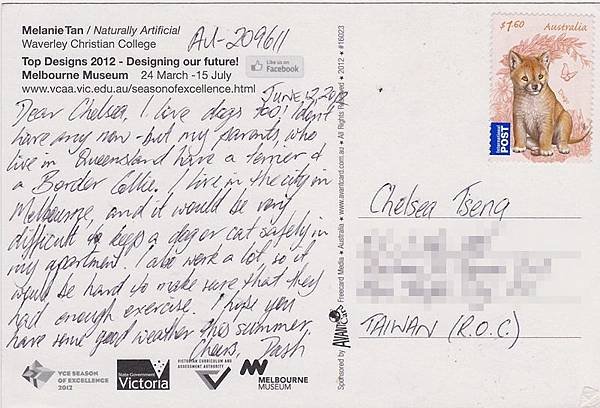 Melanie Tan / Naturally Artificial
Waverley Christian College
AU-209611
Top Designs 2012 - Designing our future!
Melbourne Museum 24 March -15 July
www.vcaa.vic.edu.au/seasonofexcellence.html
Like us on
Facebook
JUNE 12 2012
Dear Chelsea, I love dogs too, I don't
have any now - but my parents, who
live in Queensland have a terrier &
a Border Collie. I live in the city in
Melbourne, and it would be very
difficult to keep a dog or cat safely in
my apartment. I also work a lot, so it
would be hard to make sure that they
had enough exercise. I hope you
have some good weather this summer.
Cheers, Dash
VCE SEASON
OF EXCELLENCE
2012
State Government
Victoria
VICTORIAN CURRICULUM AND
ASSESSMENT AUTHORITY
MELBOURNE
MUSEUM
Sponsored by AVANT CARD Freecard Media • Australia • www.avantcard.com.au • All Rights Reserved • 2012 • #16023
$1.60 Australia
INTERNATIONAL
POST
Chelsea Tseng
TAIWAN (R.O.C)